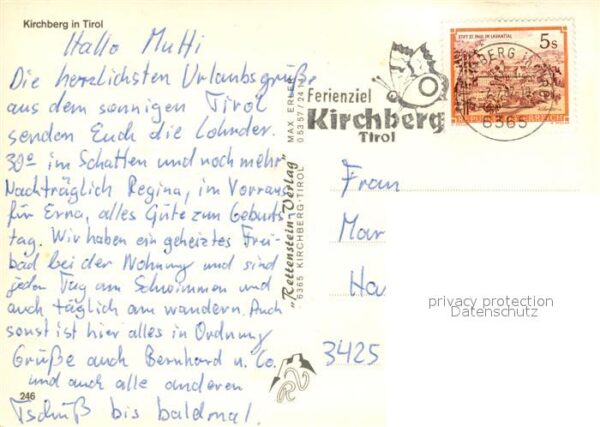 Kirchberg in Tirol
Hallo Mutti
Die herzlichsten Urlaubsgrüße
aus dem sonnigen Tirol
senden Euch die Lohnder.
30° im Schatten und noch mehr
Nachträglich Regina, im Vorraus
für Erna, alles Gute zum Geburts
tag. Wir haben ein geheiztes Frei-
bad bei der Wohnung und sind
jeden Tag am Schwimmen und
auch täglich am wandern. Auch
sonst ist hier alles in Ordnung
Grüße auch Bernhard u. Co.
und auch alle anderen
Tschüß bis baldmal.
246
MAX ERLER
05357/241
"Rettenstein-Verlag"
6365 KIRCHBERG-TIROL
Ferienziel
Kirchberg
Tirol
STIFT ST. PAUL IM LAVANTTAL
5s
6365
Frau
Mar
Ha
3425
privacy protection
Datenschutz